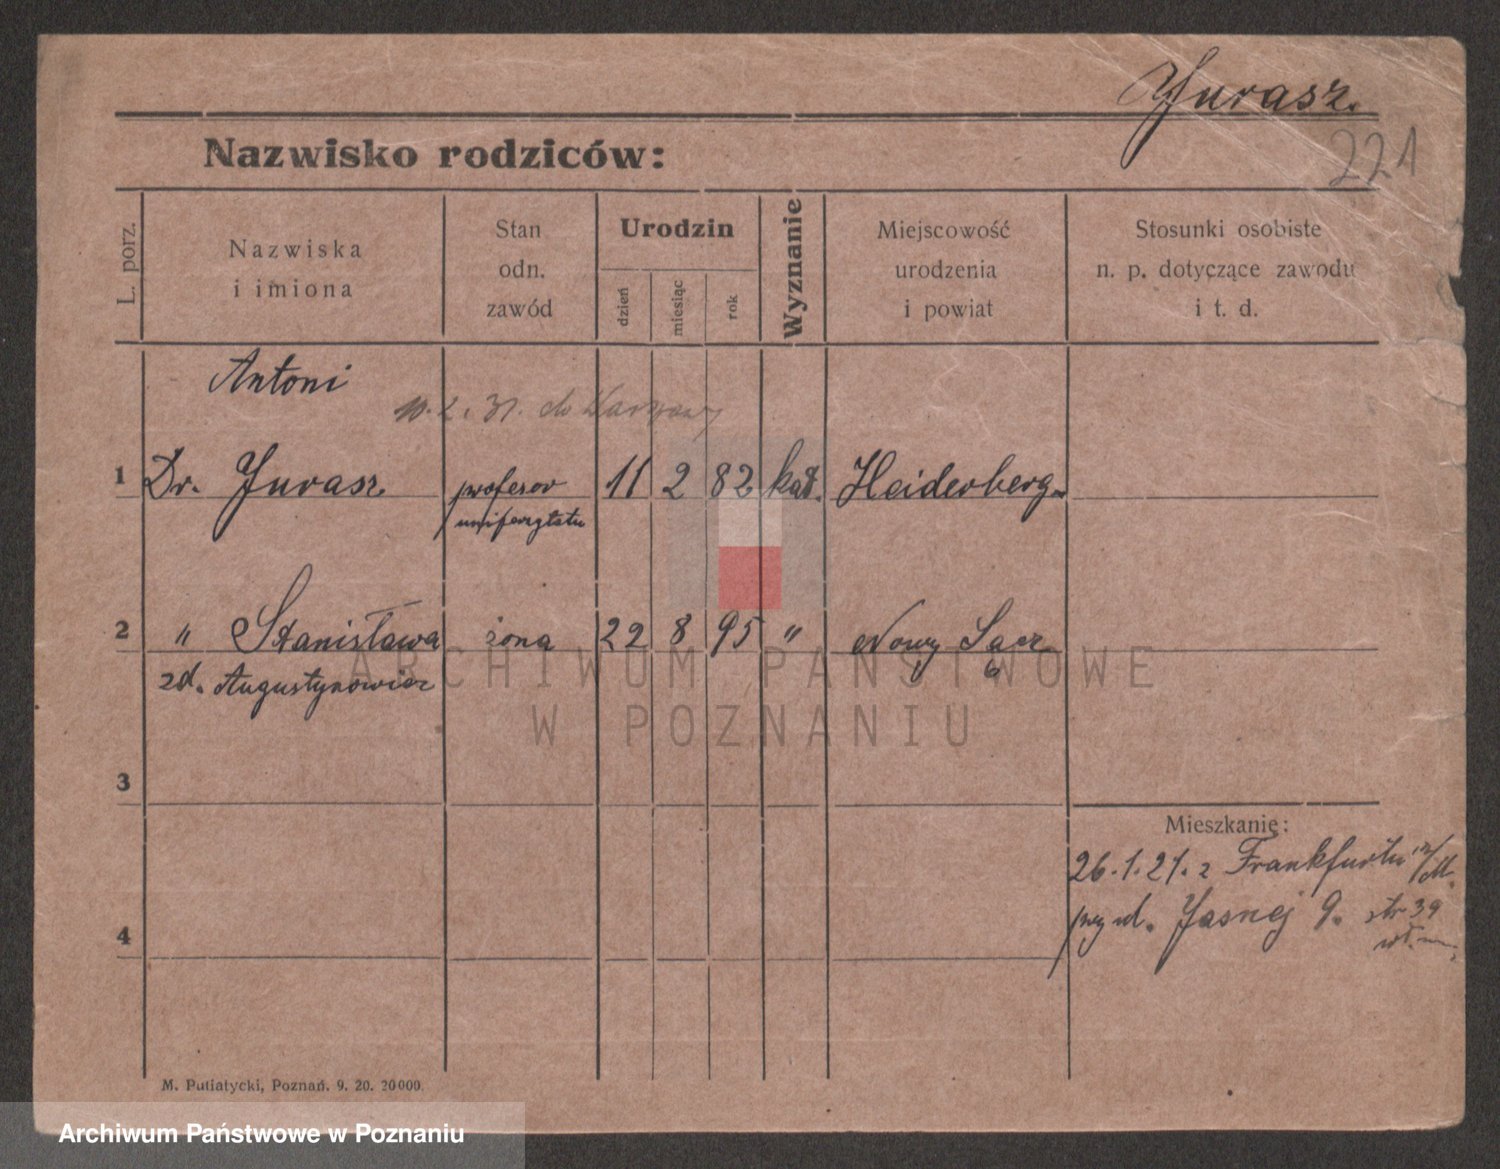 Jurasz.
221
Nazwisko rodziców:
L. porz.
Nazwiska
i imiona
Stan
odn.
zawód
Urodzin
dzień
miesiąc
rok
Wyznanie
Miejscowość
urodzenia
i powiat
Stosunki osobiste
n. p. dotyczące zawodu
i t. d.
Antoni
10. 2. 31. do Warszawy
1 Dr. Jurasz. profesor 11 2 82 kat. Heiderberg
uniferzytetu
2 " Stanisława żona 22 8 95 " Nowy Sącz
zd. Augustynowicz
ARCHIWUM PAŃSTWOWE
W POZNANIU
3
Mieszkanie:
26.1.21. z Frankfurtu n/M.
przy ul. Jasnej 9. str 39
4
M. Putiatycki, Poznań. 9. 20. 20000.
Archiwum Państwowe w Poznaniu